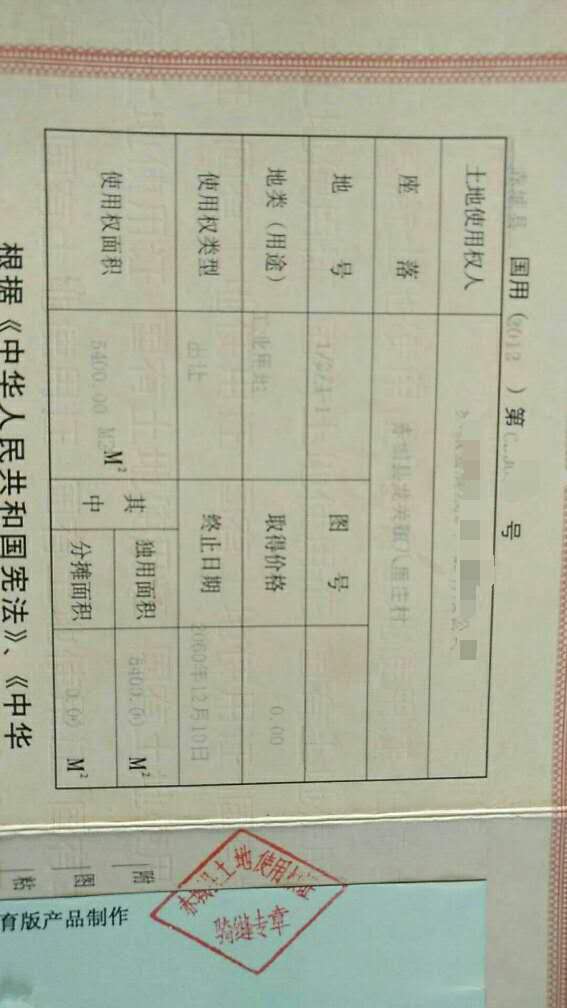 赤城县 国用（2012 ）第 号
土地使用权人
座 落 赤城县龙关镇八里庄村
地 号 1/3/1-1 图 号
地类（用途） 工业用地 取得价格 0.00
使用权类型 出让 终止日期 2060年12月10日
使用权面积 5400.00 M2M² 其中 独用面积 5400.00 M²
分摊面积 0.00 M²
根据《中华人民共和国宪法》、《中华
附
图
粘
赤城县土地使用权证
骑缝专章
育版产品制作